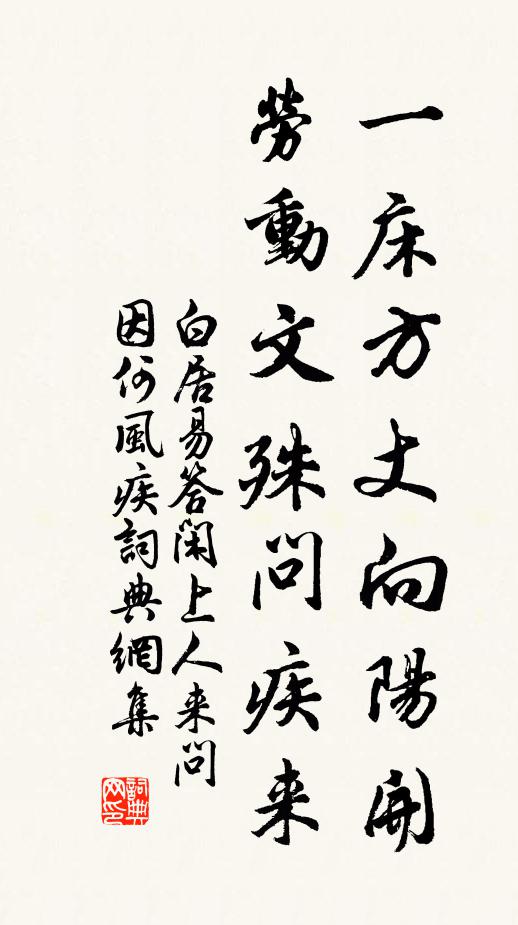 一床方丈向陽開
勞動文殊問疾来
白居易答閑上人来問
因何風疾詞典網集
詞典
网印